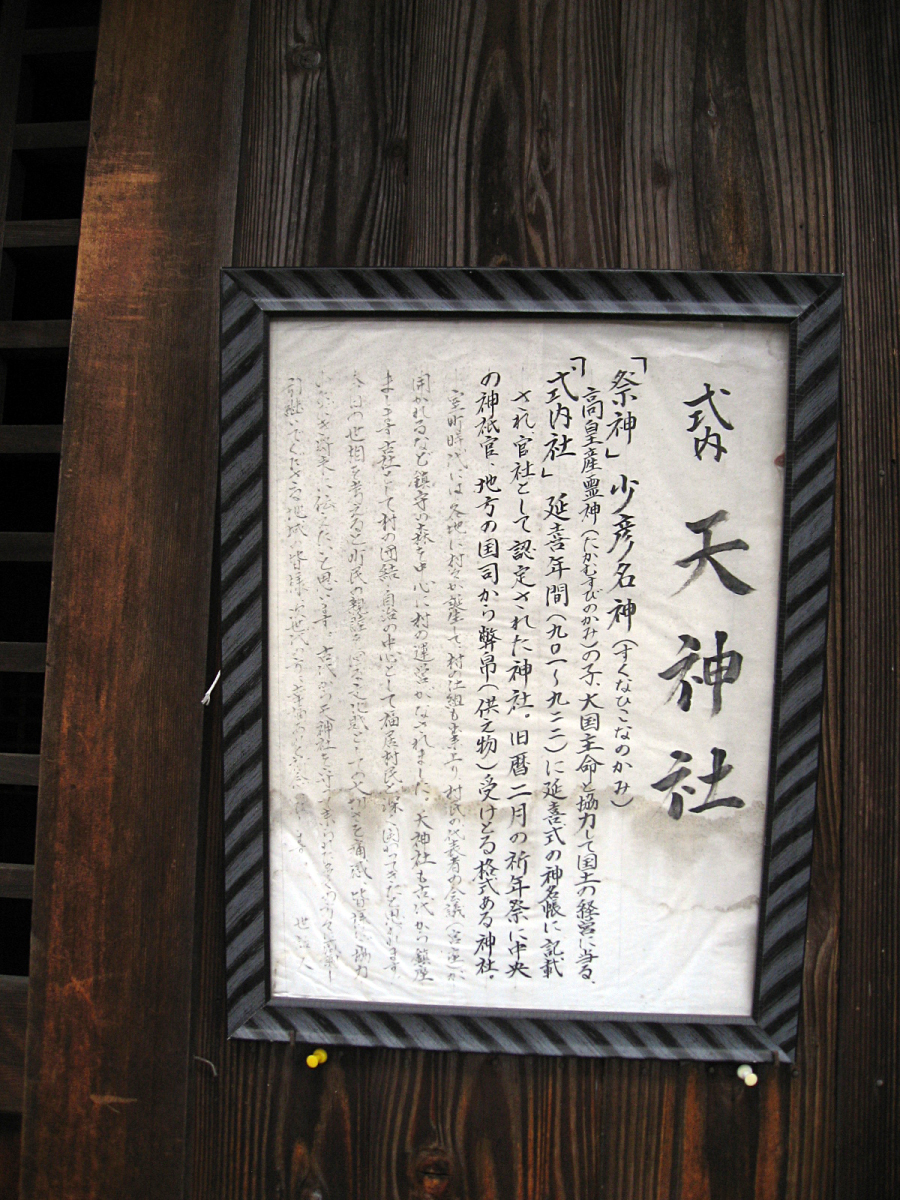 式内 天神社
「祭神」少彦名神(すくなひこなのかみ)
高皇産霊神(たかむすびのかみ)の子、大国主命と協力して国土の経営に当る、
「式内社」延喜年間(九〇一〜九二二)に延喜式の神名帳に記載
され、官社として認定された神社。旧暦二月の祈年祭に中央
の神祇官、地方の国司から弊帛(供え物)受けとる格式ある神社。
室町時代には各地に村々が誕生して、村の仕組も出来上り村民の代表者の会議(宮座)が
開かれるなど鎮守の森を中心に村の運営がなされました。天神社も古代から鎮座
まします古社として村の団結、自治の中心として福居村民と深く関わってきたと思われます
の世相を考えると町民の 大切さを痛感、皆様 協力
将来に伝えたいと思います。古代からの天神社を
引継いでくださる地域の皆様、次世代の
世話人